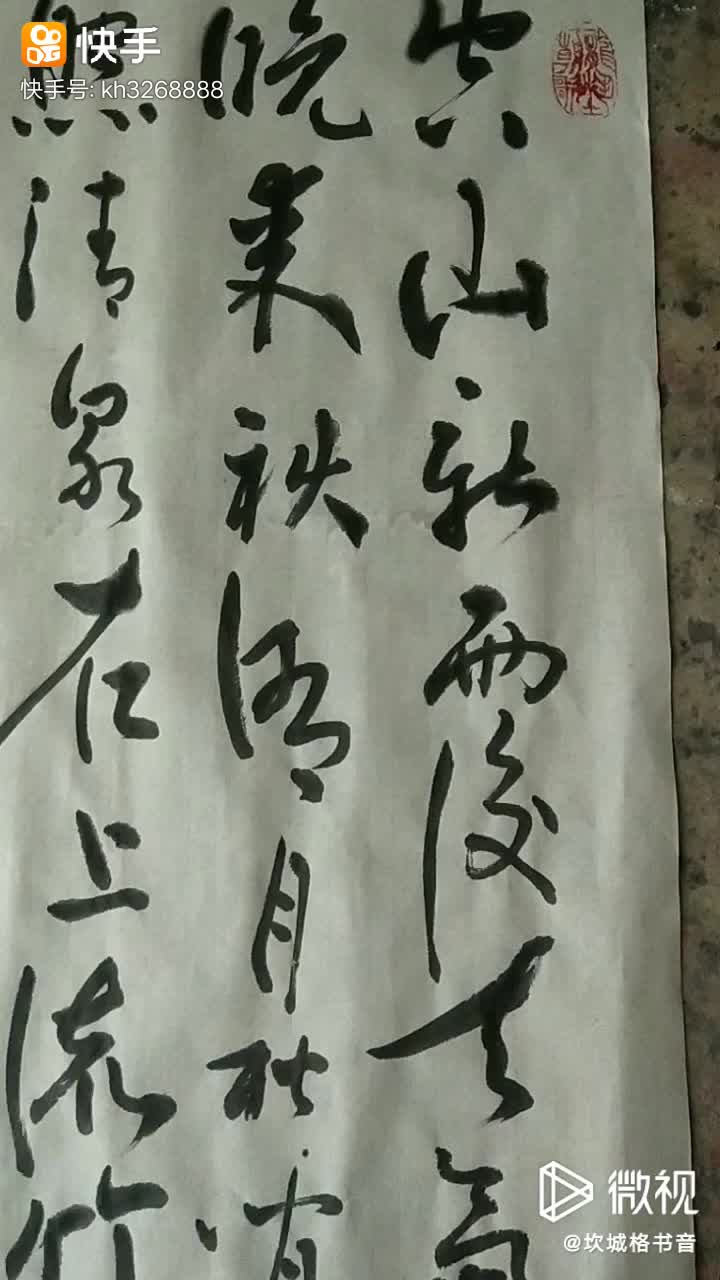 快手
快手号: kh3268888
空山新雨後天氣
晚来秋明月松間
照清泉石上流竹
微视
@坎城格书音